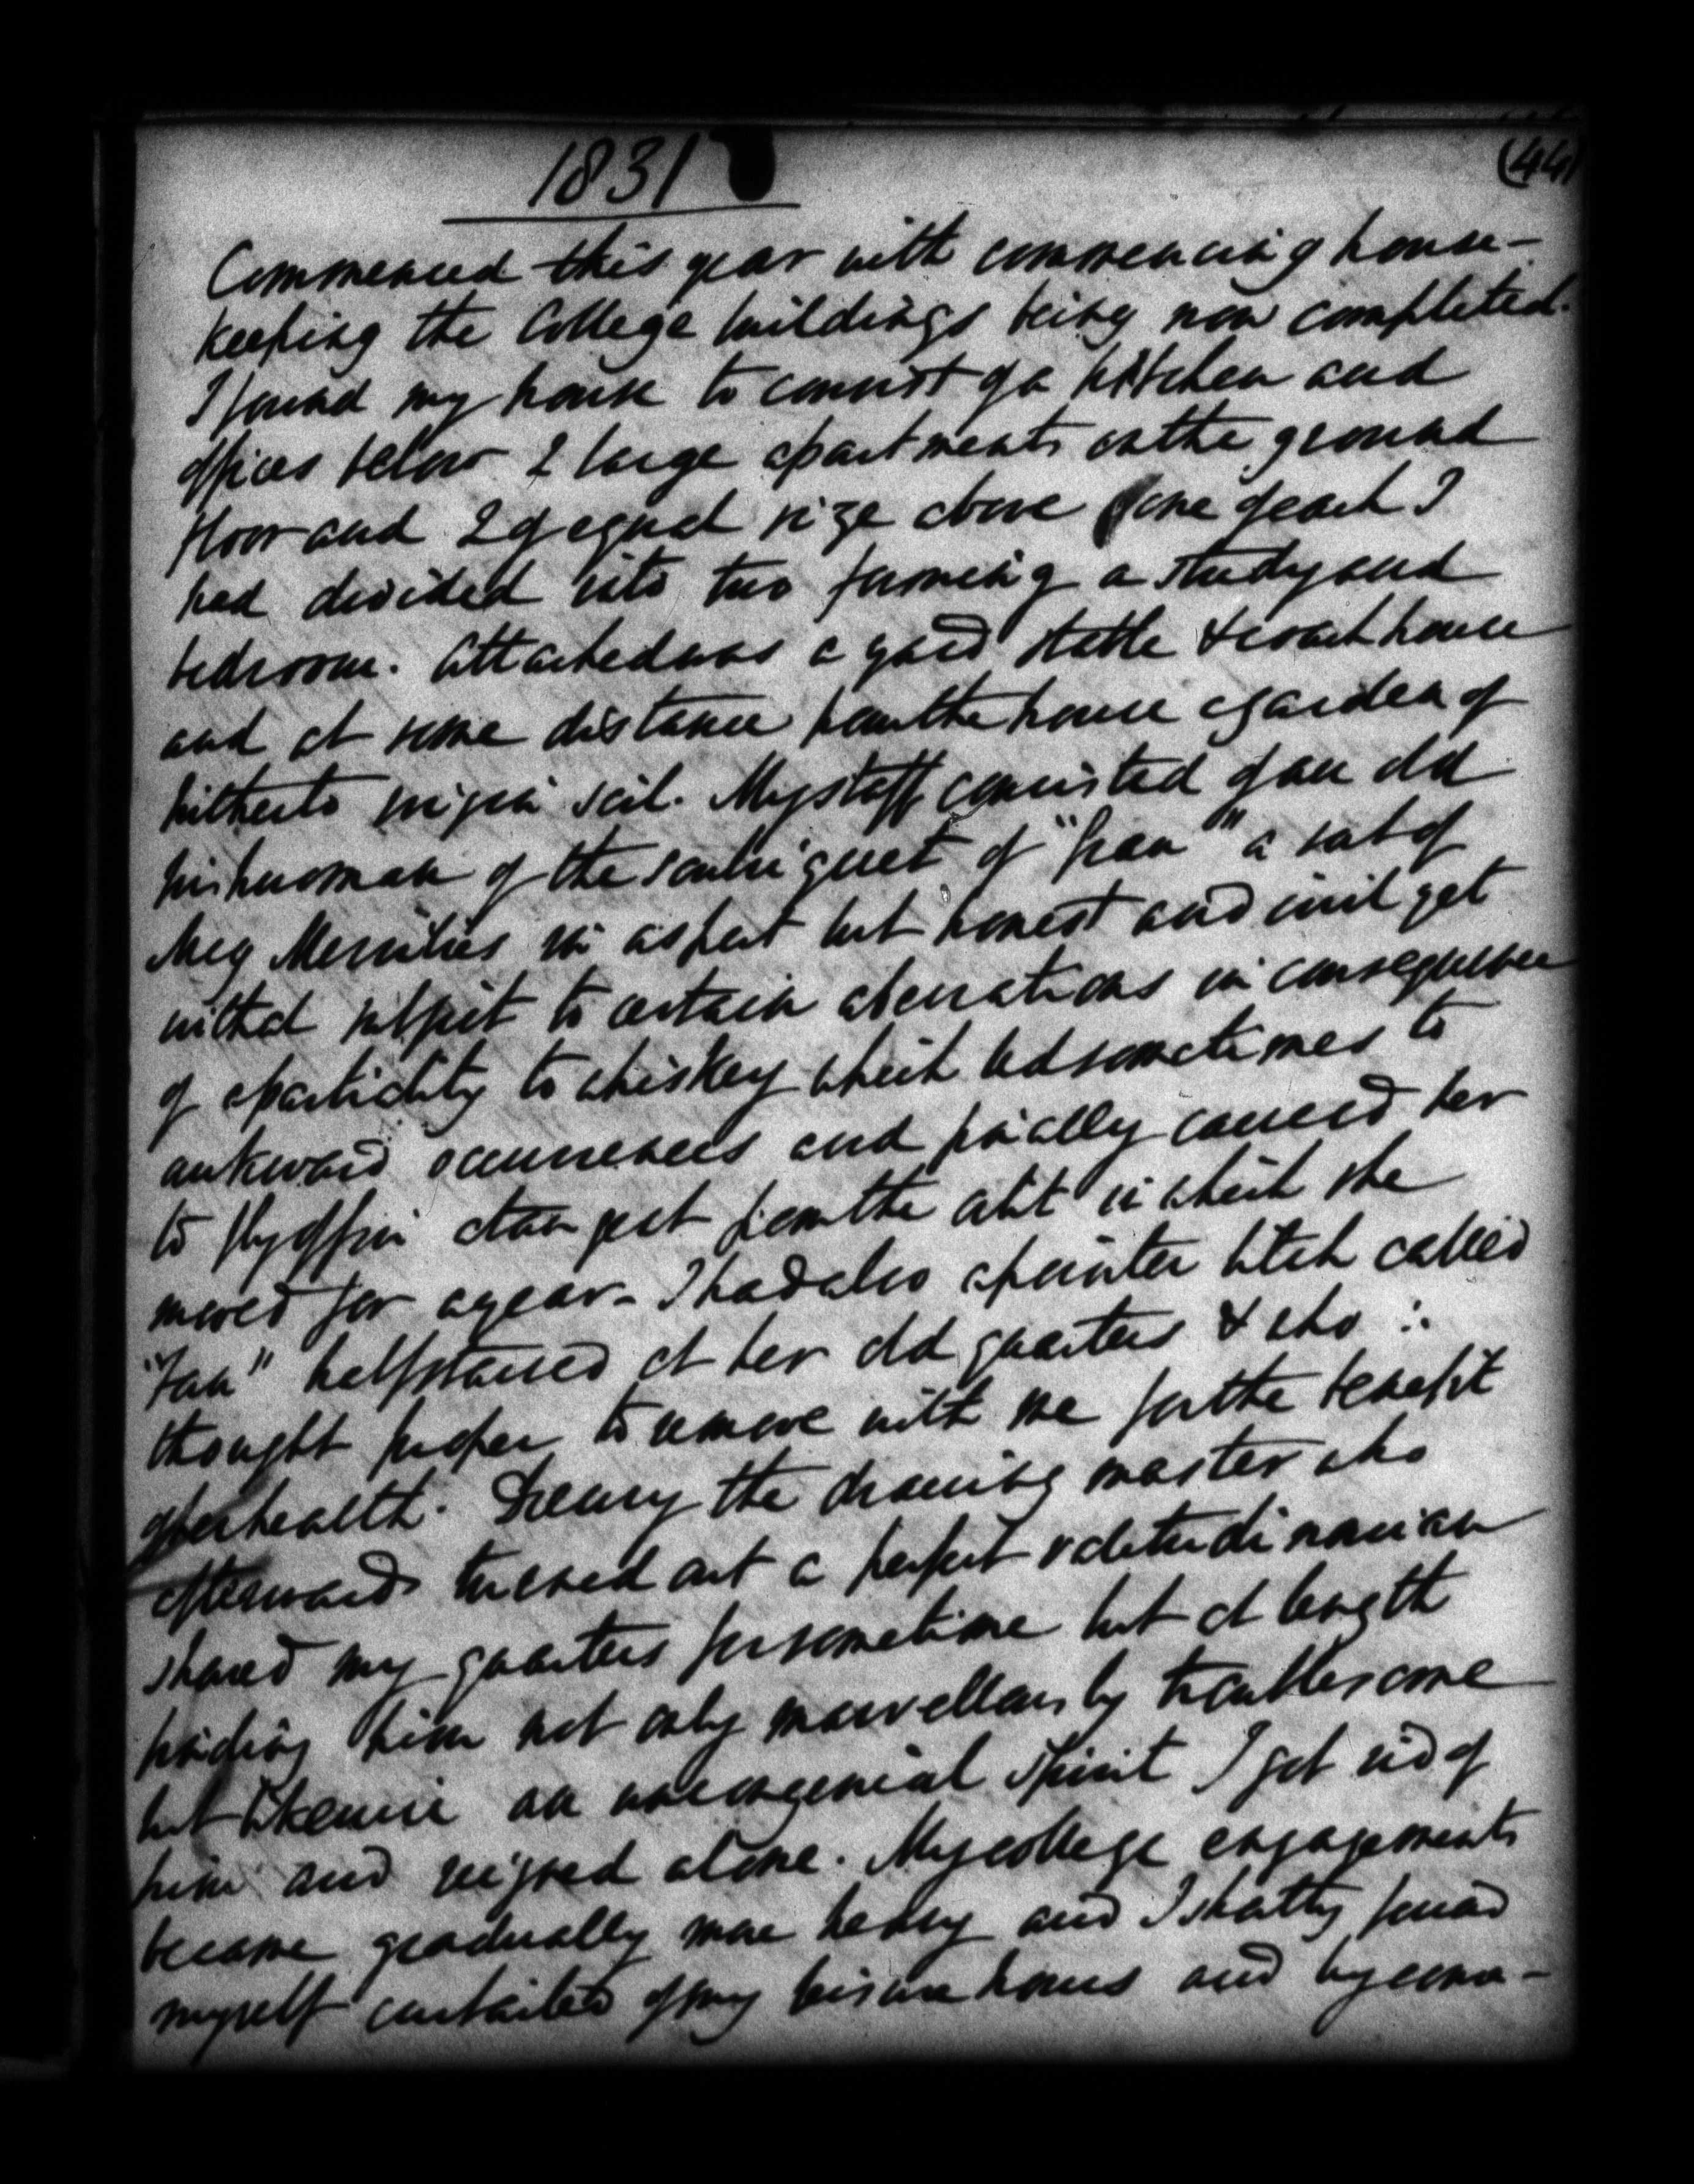 1831
(44)
Commenced this year with commencing house-
keeping the College buildings being now completed.
I found my house to consist of a kitchen and
offices below 2 large apartments on the ground
floor and 2 of equal size above one of each I
had divided into two forming a study and
bedroom. Attached was a yard stable & coach house
and at some distance from the house a garden of
hitherto virgin soil. My staff consisted of an old
Irishwoman of the soubriquet of " " a sort of
Meg Merrilies in aspect but honest and civil yet
withal subject to certain aberrations in consequence
of a partiality to whiskey which led sometimes to
awkward occurrences and finally caused her
to fly off in a tangent from the orbit in which she
moved for a year - I had also a pointer bitch called
"Fan" half starved at her old quarters & who ∴
thought proper to remove with me for the benefit
of her health. Drewry the drawing master who
afterwards turned out a perfect valetudinarian
shared my quarters for sometime but at length
finding him not only marvellously troublesome
but likewise an uncongenial spirit I got rid of
him and reigned alone. My college engagements
became gradually more heavy and I shortly found
myself curtailed of my leisure hours and by